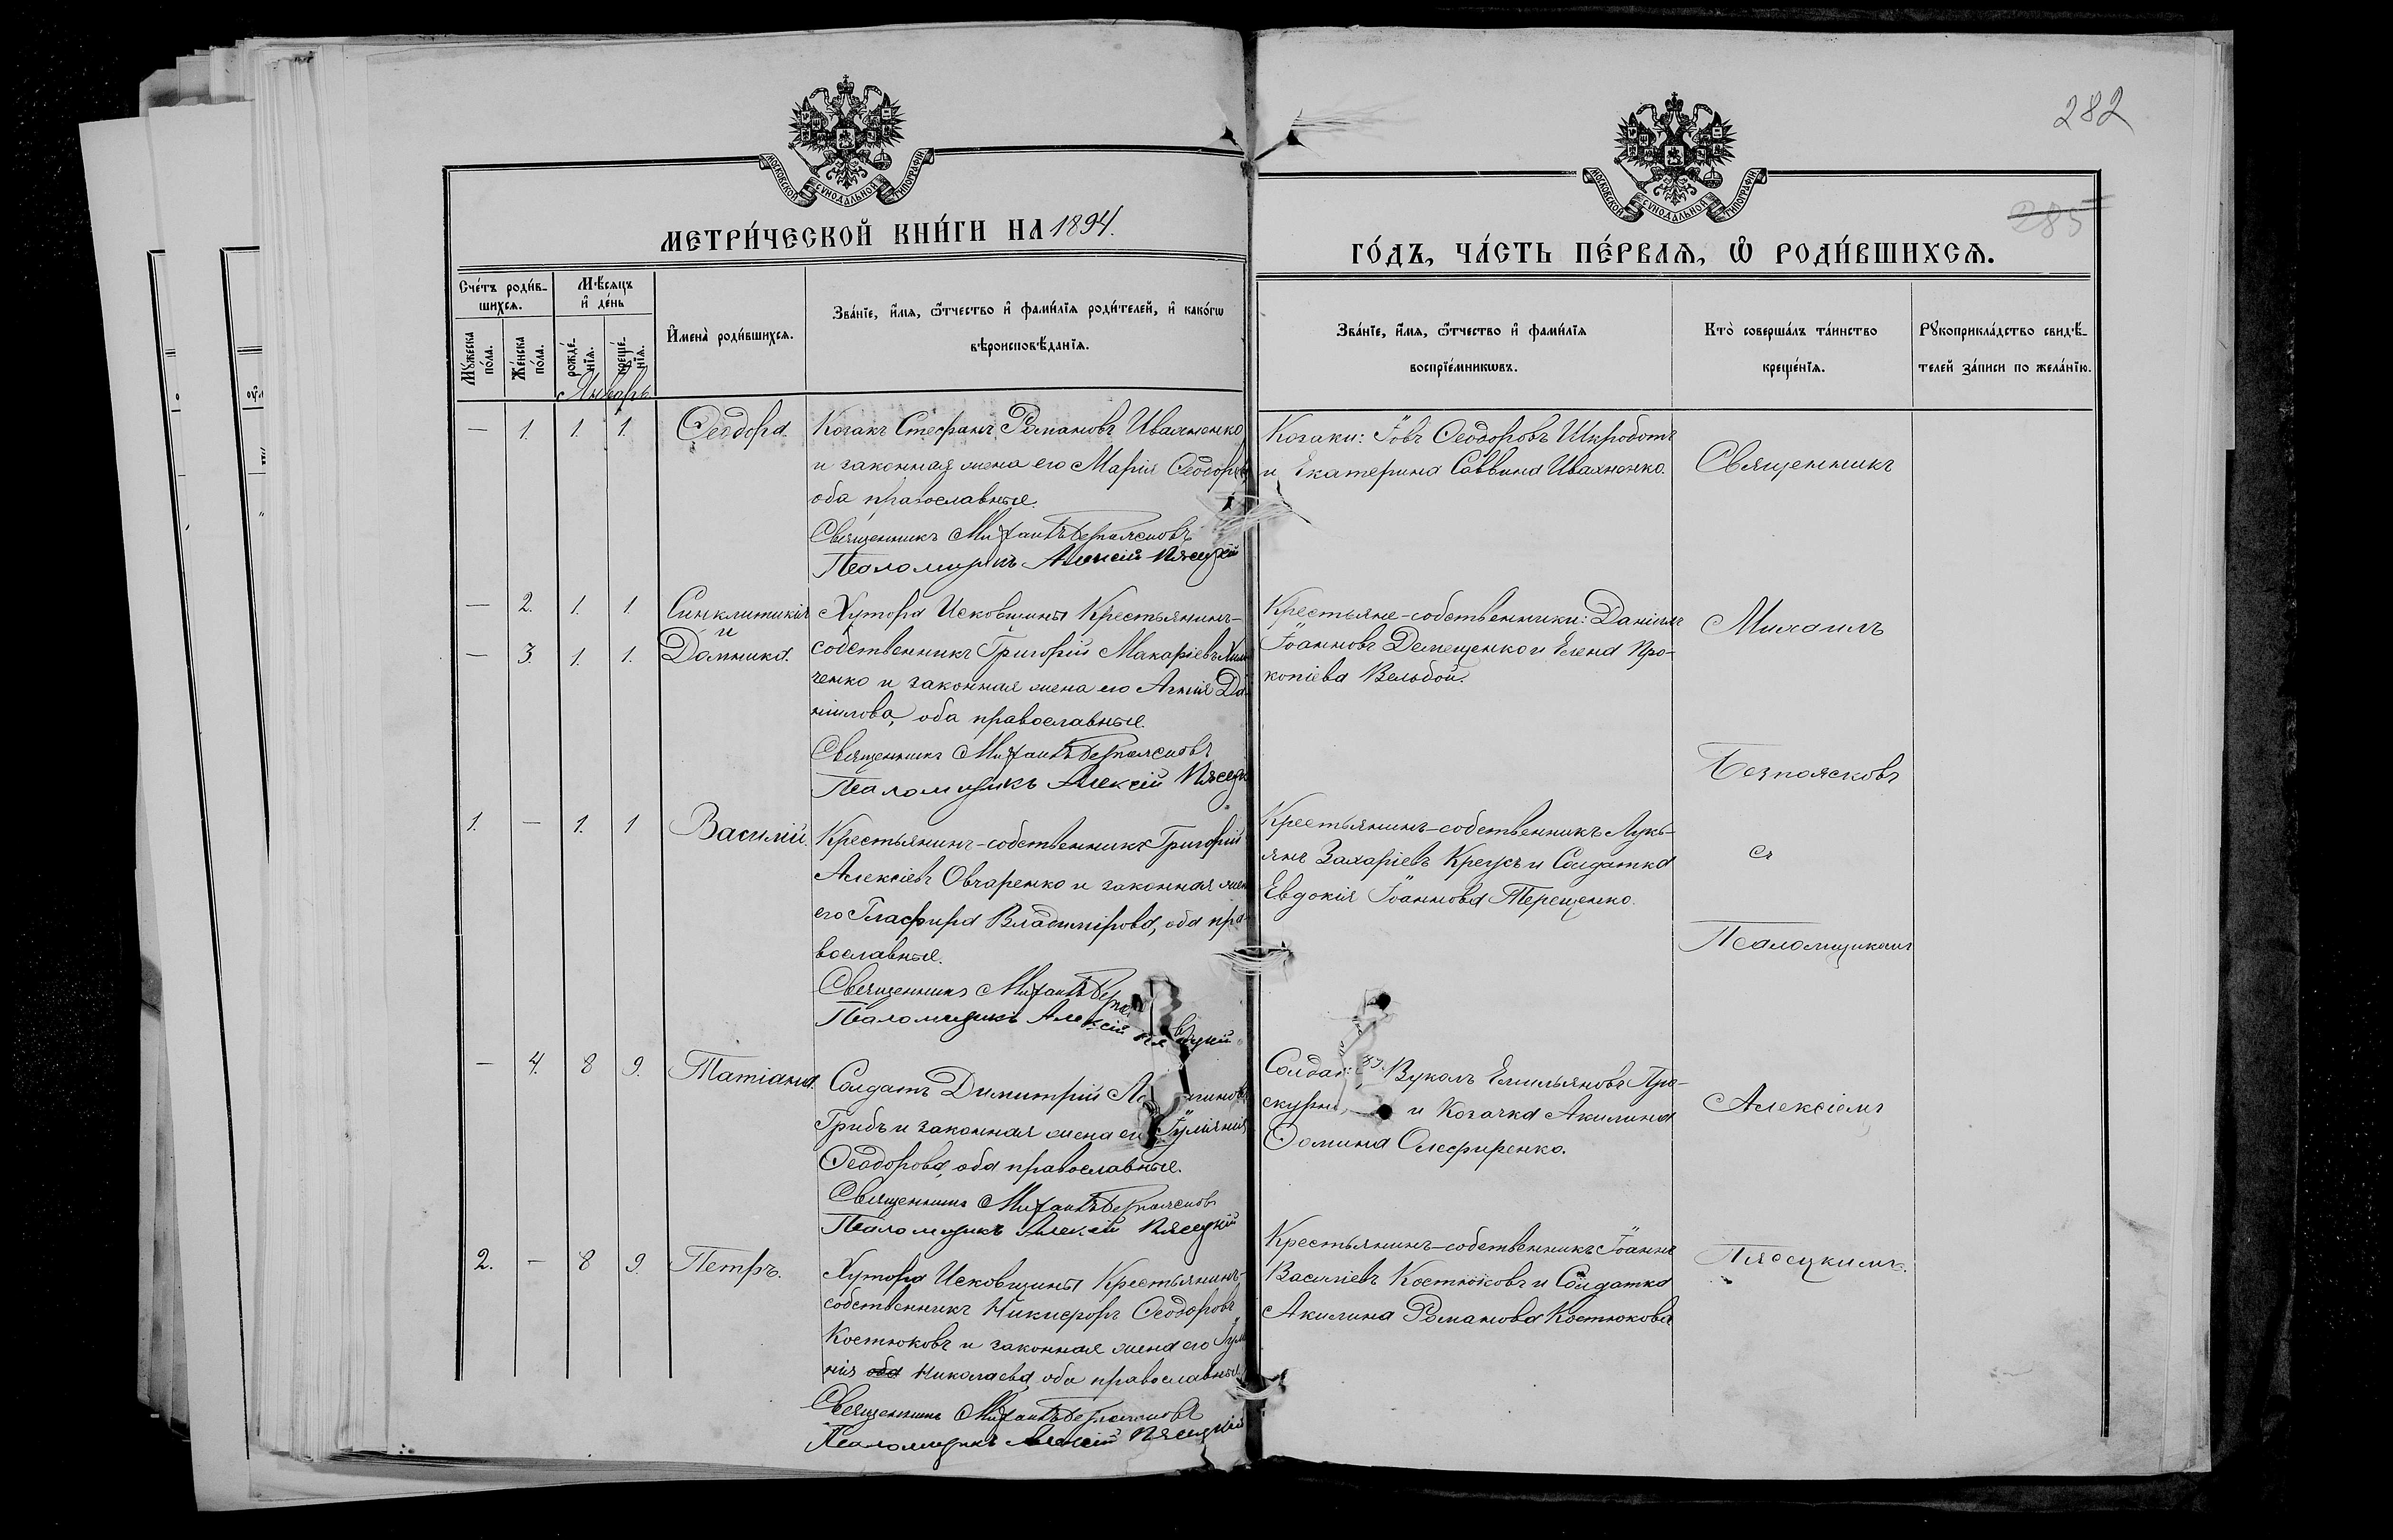 282
285
МОСКОВСКОЙ СѴНОДАЛЬНОЙ ТИПОГРАФІИ
МОСКОВСКОЙ СѴНОДАЛЬНОЙ ТИПОГРАФІИ
МЕТРИ́ЧЕСКОЙ КНИ́ГИ НА 1894.
ГО́ДЪ, ЧА́СТЬ ПЕ́РВАЯ, Ѡ РОДИ́ВШИХСЯ.
Сче́тъ роди́в-
шихся.
Мѣ́сяцъ
и҆ де́нь
Мꙋ́жеска
по́ла.
Же́нска
по́ла.
рожде́-
нїя.
креще́-
нїя.
И҆мена̀ роди́вшихся.
Зва́нїе, и҆́мя, ѻ҆́тчество и҆ фами́лїя роди́телей, и҆ како́гѡ
вѣроисповѣ́данїя.
Зва́нїе, и҆́мя, ѻ҆́тчество и҆ фами́лїя
воспрїе́мникѡвъ.
Кто̀ соверша́лъ та́инство
креще́нїя.
Рꙋкоприкла́дство свидѣ́-
телей за́писи по жела́нїю.
Январь
— 1. 1. 1. Ѳеодора.
Козакъ Стефанъ Романовъ Ивахненко
и законная жена его Марія Ѳеодоро
оба православные.
Священникъ Михаилъ Безпоясковъ
Псаломщикъ Алексій Пясецкій
Козаки: Іовъ Ѳеодоровъ Шкроботъ
и Екатерина Саввина Ивахненко.
Священникъ
— 2. 1. 1 Синклитикія
и
— 3. 1. 1. Домника.
Хутора Исковщины Крестьянинъ-
собственникъ Григорій Макаріевъ
ченко и законная жена его Агнія Да
ніилова, оба православные.
Священникъ Михаилъ Безпоясковъ
Псаломщикъ Алексій Пясецк
Крестьяне-собственники: Даніилъ
Іоанновъ Демещенко и Елена Про-
копіева Вельбой.
Михаилъ
Безпоясковъ
1. — 1. 1 Василій.
Крестьянинъ-собственникъ Григорій
Алексіевъ Овчаренко и законная жен
его Глафира Владимірова, оба пра-
вославные.
Священникъ Михаилъ Безпо
Псаломщикъ Алексій Пясецкій
Крестьянинъ-собственникъ Лукь-
янъ Захаріевъ Креусъ и Солдатка
Евдокія Іоаннова Терещенко.
съ
Псаломщикомъ
— 4. 8 9. Татіана.
Солдатъ Димитрій
Грибъ и законная жена его Іуліанія
Ѳеодорова, оба православные.
Священникъ Михаилъ Безпоясковъ
Псаломщикъ Алексій Пясецкій
Вуколъ Емильяновъ Про-
скурн и Козачка Акилина
Ѳомина Олефиренко.
Алексіемъ
2. — 8 9. Петръ.
Хутора Исковщины Крестьянинъ-
собственникъ Никифоръ Ѳеодоровъ
Костюковъ и законная жена его Іулі
нія оба Николаева, оба православные
Священникъ Михаилъ Безпоясковъ
Псаломщикъ Алексій Пясецкій
Крестьянинъ-собственникъ Іоаннъ
Василіевъ Костюковъ и Солдатка
Акилина Романова Костюкова
Пясецкимъ.